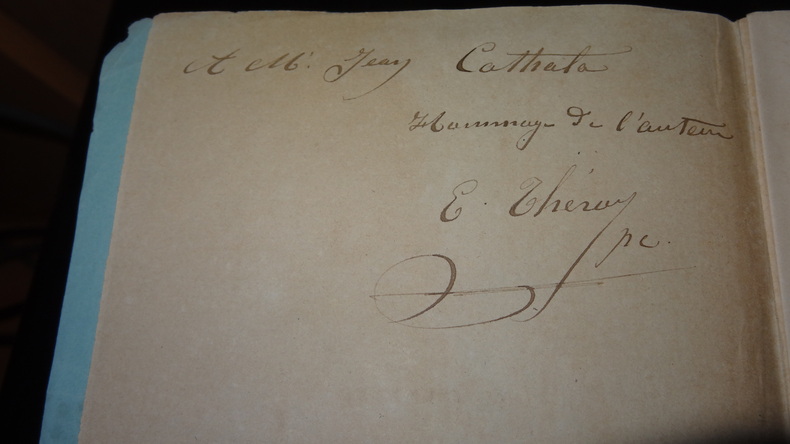 A Mr. Jean Cathala
Hommage de l'auteur
E. Théron
pc.